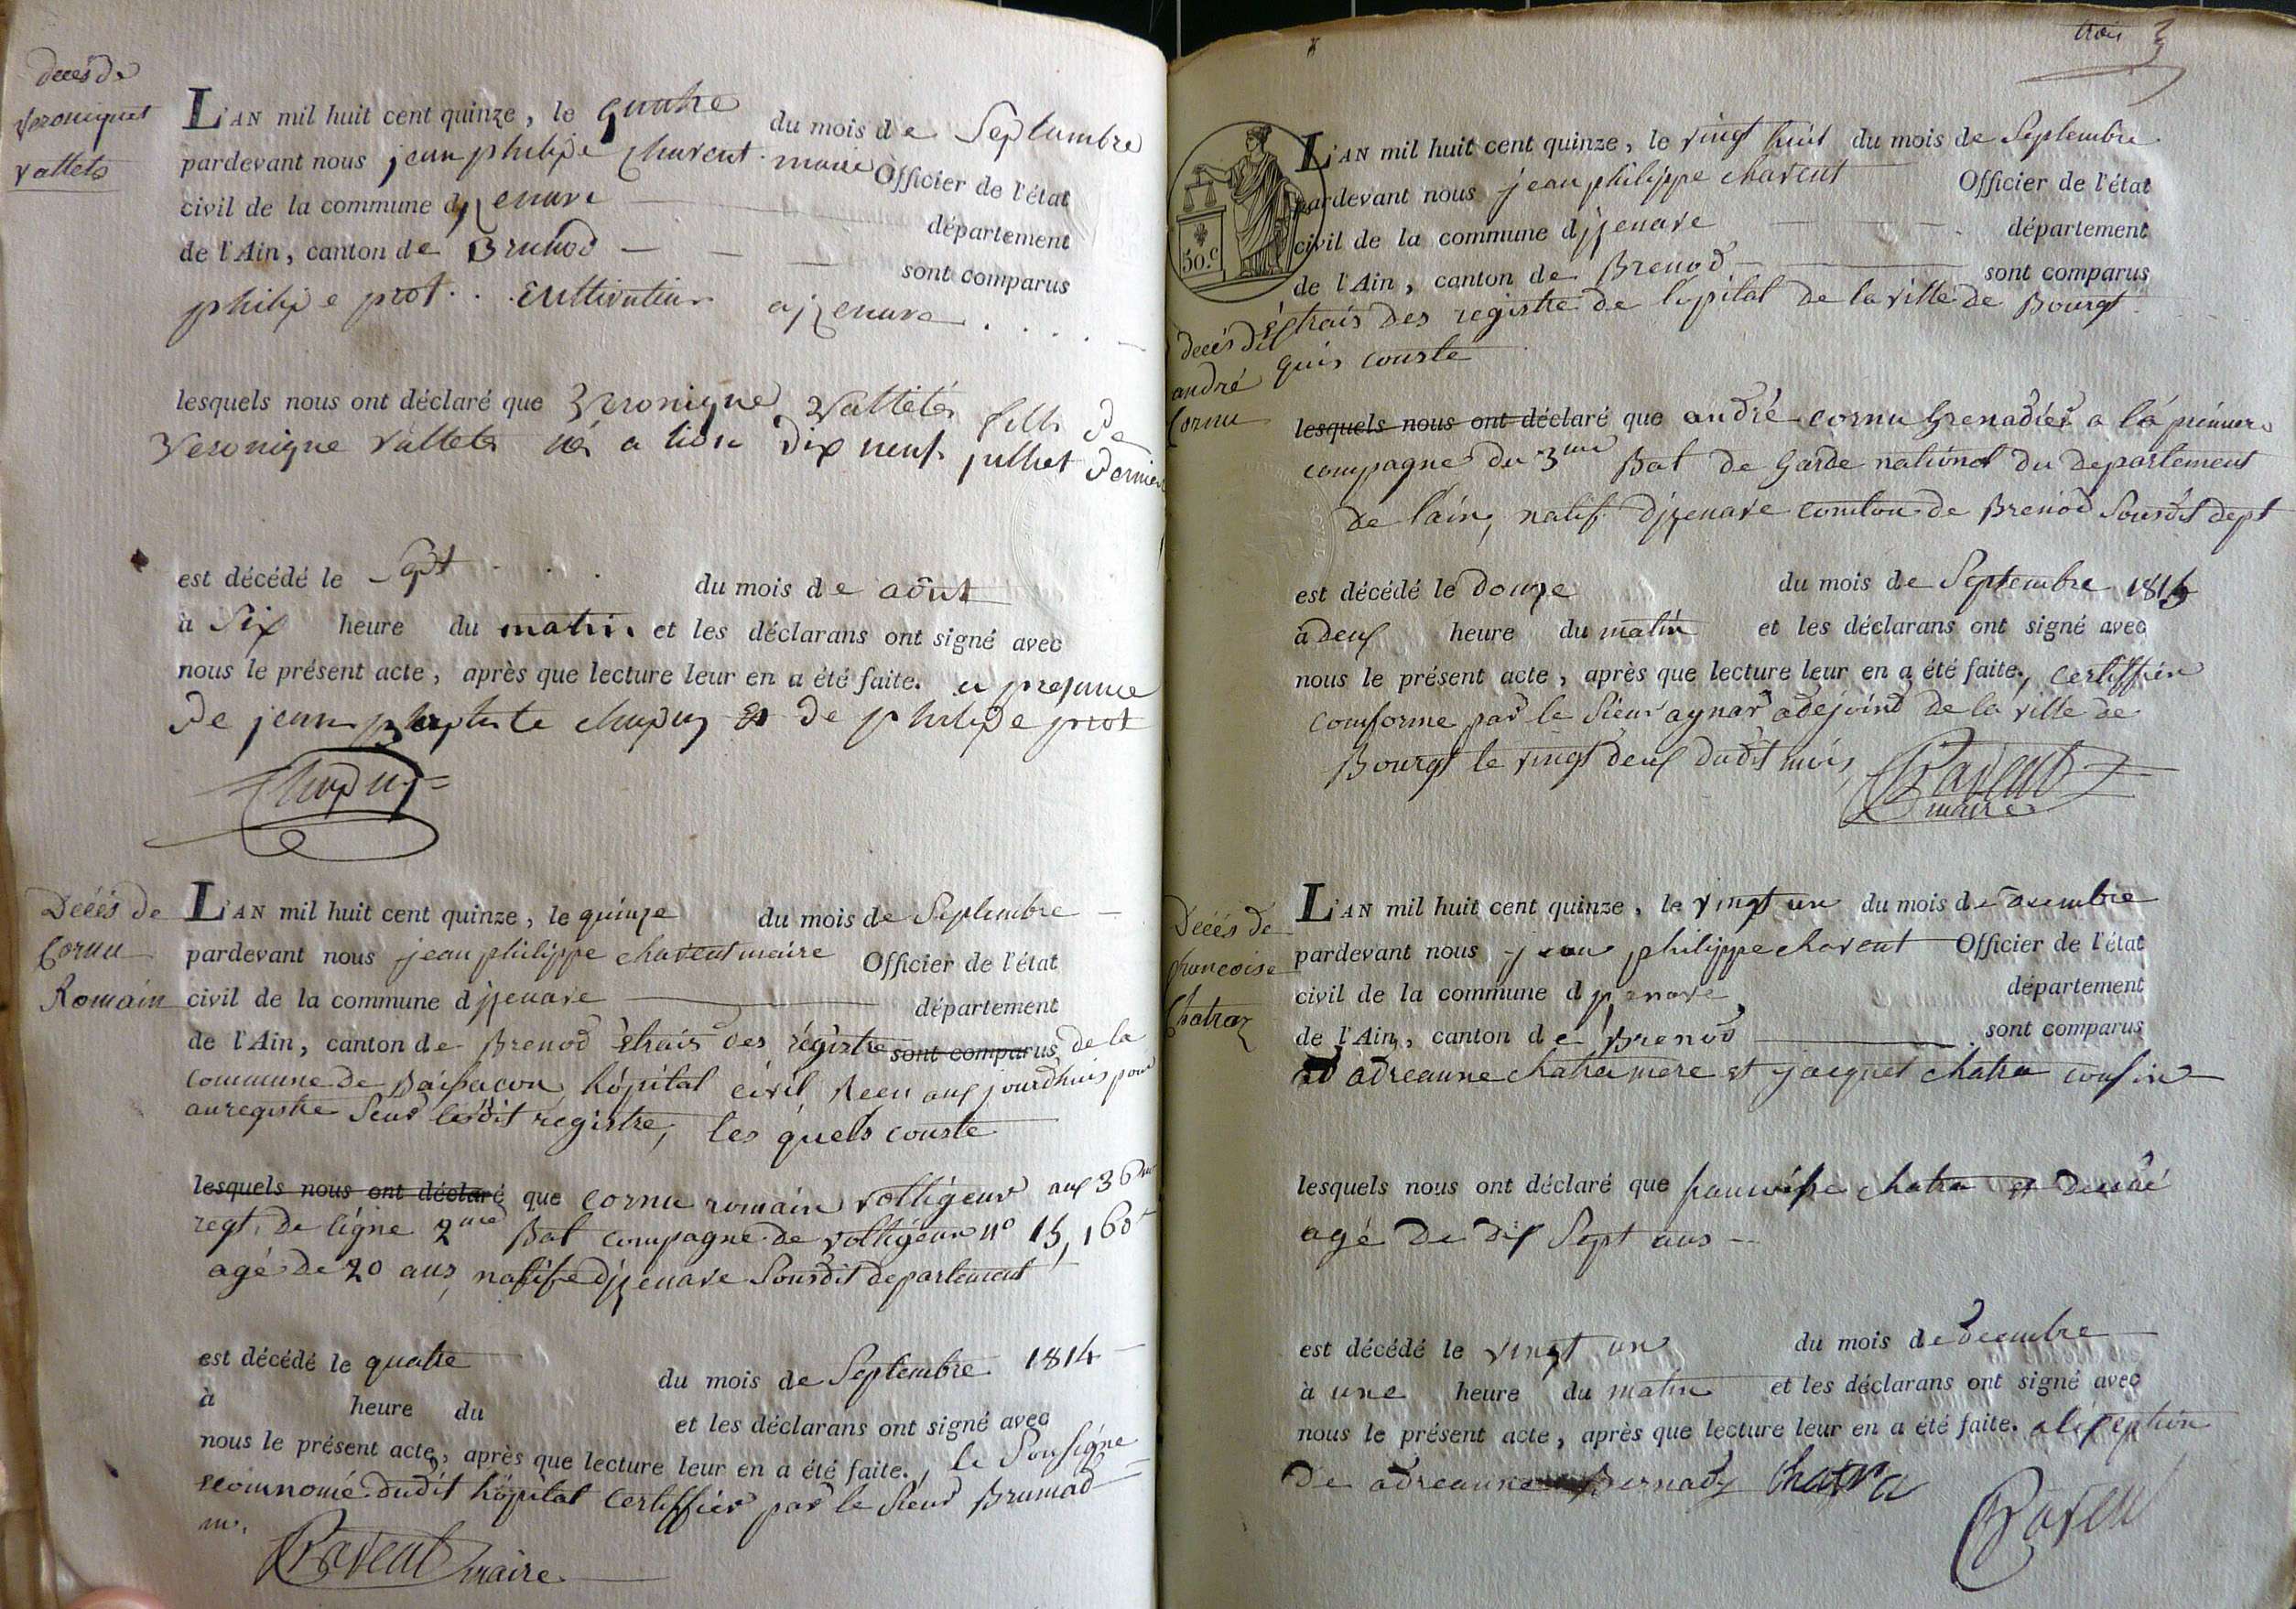 decés de
Veronique
Vallets
L'AN mil huit cent quinze, le quatre du mois de Septambre
pardevant nous jean philipe Charvent maire Officier de l'état
civil de la commune dizenave département
de l'Ain, canton de Brunod sont comparus
philipe prot cultivateur a izenave
lesquels nous ont déclaré que Veronique Valletés fille de
Veronique Vallets né a lion dix neuf julliet dernier
est décédé le Sept du mois de août
à Six heure du matin et les déclarans ont signé avec
nous le présent acte, après que lecture leur en a été faite. en presance
de jean baptiste chapuy et de philipe prot
Chapuy
Décés de
Cornu
Romain
L'AN mil huit cent quinze, le quinze du mois de Septembre
pardevant nous jean philippe charvent maire Officier de l'état
civil de la commune dizenave département
de l'Ain, canton de Brenod Etrais des régistre sont comparus de la
commune de hôpital civil Recu aux jourdhuis pour
anregistre Seur lesdit registre, les quels conste
lesquels nous ont déclaré que cornu romain voltigeur aux 36me
regt. de ligne 2me Bat compagne de voltigeur n° 15,160
agé de 20 ans, natife dizenave Sousdit departement
est décédé le quatre du mois de Septembre 1814
à heure du et les déclarans ont signé avec
nous le présent acte, après que lecture leur en a été faite., le Sousigne
econnomé dudit hôpital certiffier par le Sieur Brumad
m.
Charvent maire
trois 3
50.c
L'AN mil huit cent quinze, le vingt huit du mois de Septembre
pardevant nous jean philippe charvent Officier de l'état
civil de la commune dizenave département
de l'Ain, canton de Brenod sont comparus
Extrais des registre de l'opital de la ville de Bourgt
quis conste
decés de
andré
Cornu
lesquels nous ont déclaré que andré cornu Grenadier a la premiere
compagne du 3me Bat de Garde national du departement
de l'ain, natif dizenave comton de Brenod Sousdit dept
est décédé le douze du mois de Septembre 1815
à deux heure du matin et les déclarans ont signé avec
nous le présent acte, après que lecture leur en a été faite., certiffier
comforme par le Sieur aynard adejoind de la ville de
Bourgt le vingt deux dudit mois
Charvent
maire
Décés de
francoise
Chatraz
L'AN mil huit cent quinze, le vingt un du mois de decembre
pardevant nous jean philippe charvent Officier de l'état
civil de la commune dizenave département
de l'Ain, canton de Brenod sont comparus
adreanne chatra mere et jacquet chatra cousin
lesquels nous ont déclaré que francoise chatra et decédé
agé de dix Sept ans
est décédé le vingt un du mois de decembre
à une heure du matin et les déclarans ont signé avec
nous le présent acte, après que lecture leur en a été faite. a l'exception
de adreanne Bernady Chatra
Charvent